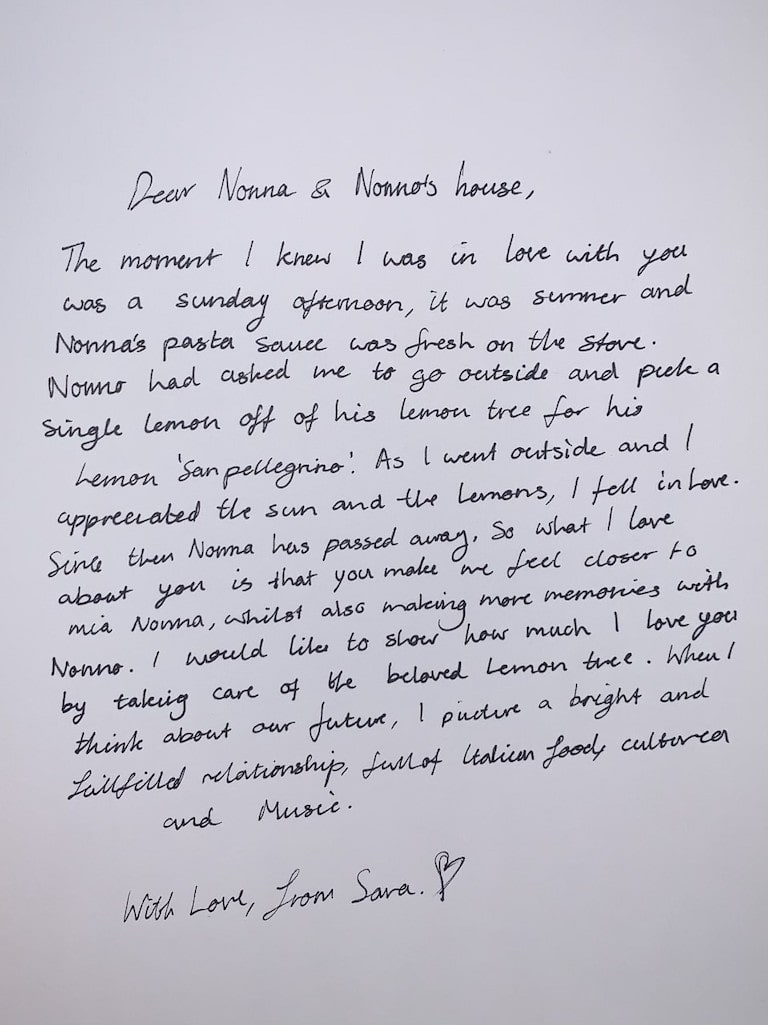 Dear Nonna & Nonno's house,
The moment I knew I was in love with you
was a sunday afternoon, it was summer and
Nonna's pasta sauce was fresh on the stove.
Nonno had asked me to go outside and pick a
single lemon off of his lemon tree for his
Lemon 'San pellegrino'. As I went outside and I
appreciated the sun and the lemons, I fell in love.
Since then Nonna has passed away. So what I love
about you is that you make me feel closer to
mia Nonna, whilst also making more memories with
Nonno. I would like to show how much I love you
by taking care of the beloved Lemon tree. When I
think about our future, I picture a bright and
fullfilled relationship, full of Italian food,
and Music.
With Love, from Sara.